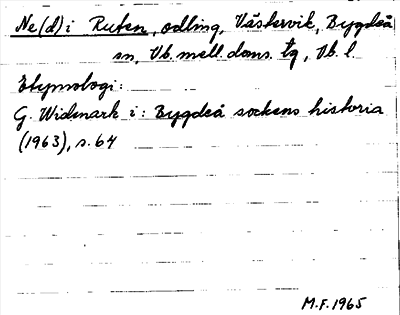 Ne(d) i Ruten, odling, Väskervik, Bygdeå
sn, Vb. mell. doms. tg, Vb. l.
Etymologi:
G. Widmark i: Bygdeå sockens historia
(1963), s. 64
M.F. 1965